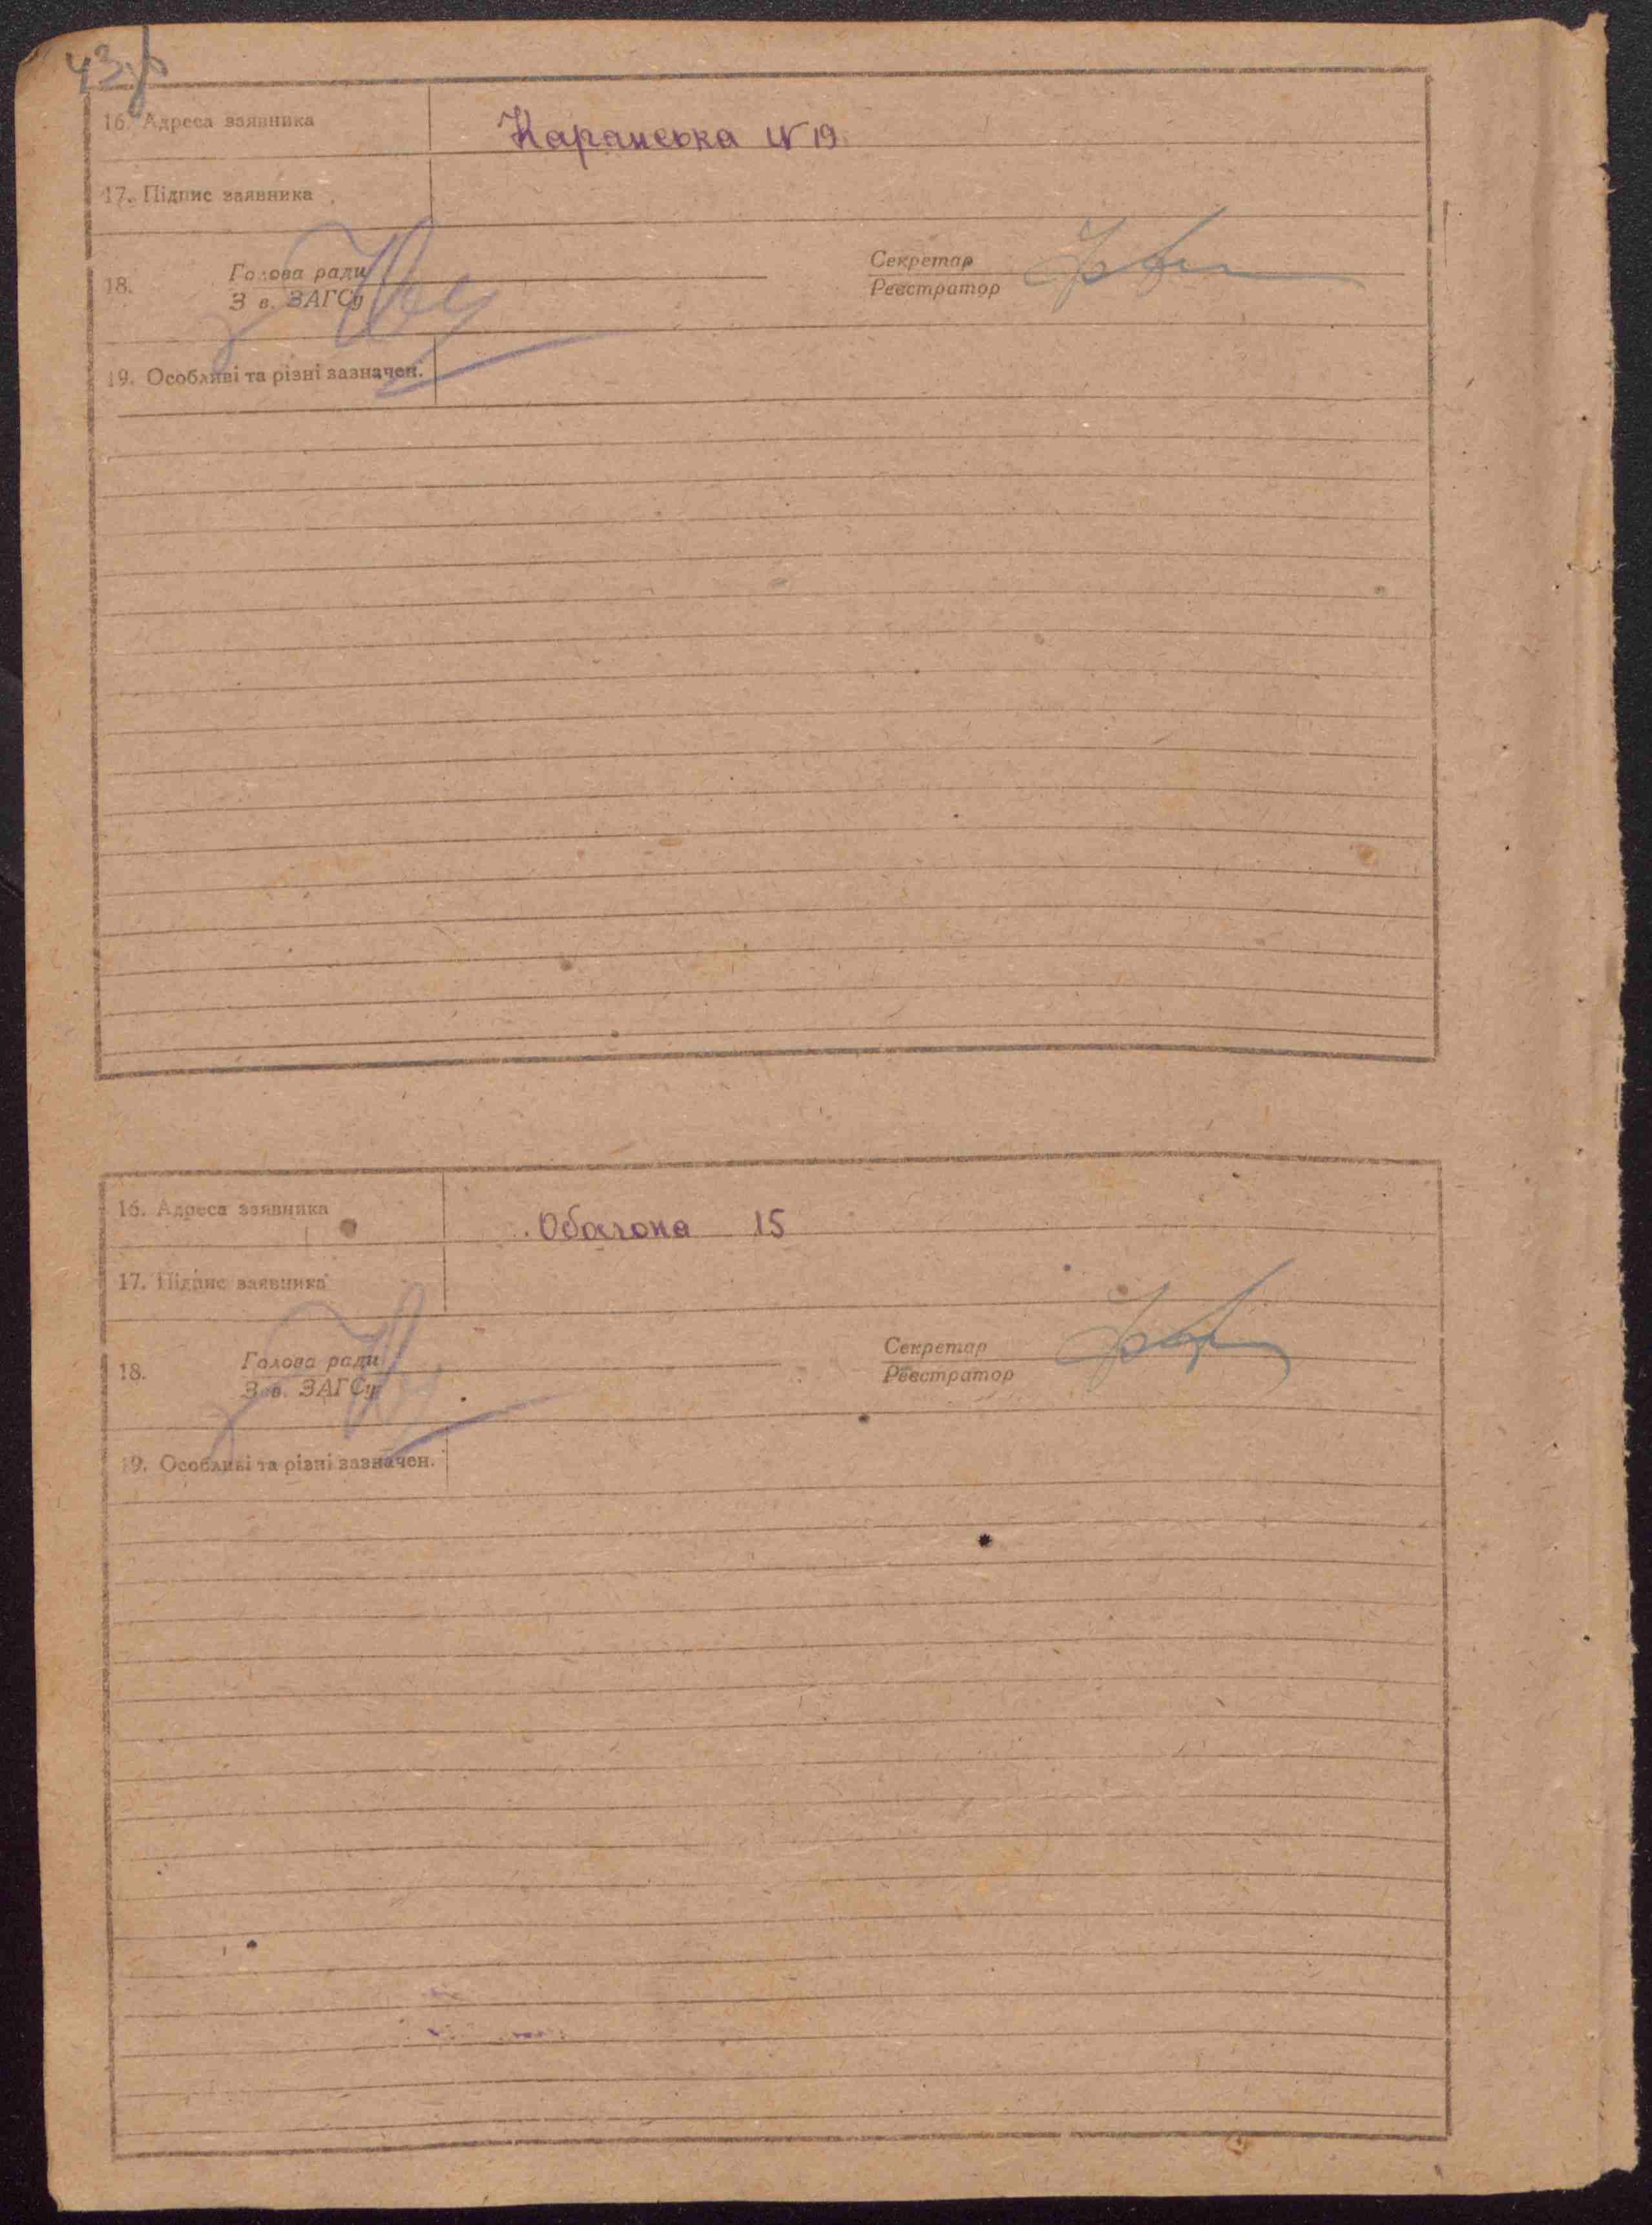 16. Адреса заявника Каранська № 19
17. Підпис заявника
18. Голова ради Секретар
З в. ЗАГСу Реєстратор
19. Особливі та різні зазначен.
16. Адреса заявника 15
17. Підпис заявника
18. Голова ради Секретар
З в. ЗАГСу Реєстратор
19. Особливі та різні зазначен.